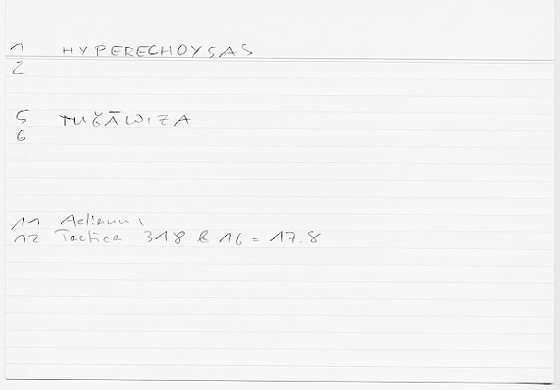 1 HYPERECHOYSAS
2
5 MUŠĀWIZA
6
11 Aelianus,
12 Tactica 318 B 16 = 17.8